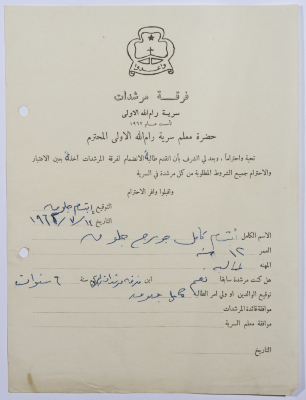 واعدوا
فرقة مرشدات
سرية رام الله الاولى
تأسست عام ١٩٦٢
حضرة معلم سرية رام الله الاولى المحترم
تحية واحتراما، وبعد لي الشرف بأن اتقدم طالبة الانضمام لفرقة المرشدات آخذة بعين الاعتبار
والاحترام جميع الشروط المطلوبة من كل مرشدة في السرية
وتفضلوا وافر الاحترام
التوقيع ابتسام
التاريخ
الاسم الكامل ابتسام كامل جريس
العمر ١٢ سنة
المهنة طالبة
هل كنت مرشدة سابقا نعم اين فرقة مرشدات منذ ٦ سنوات
توقيع الوالدين او ولي امر الطالبة كامل
موافقة قائدة المرشدات
موافقة معلم السرية
التاريخ